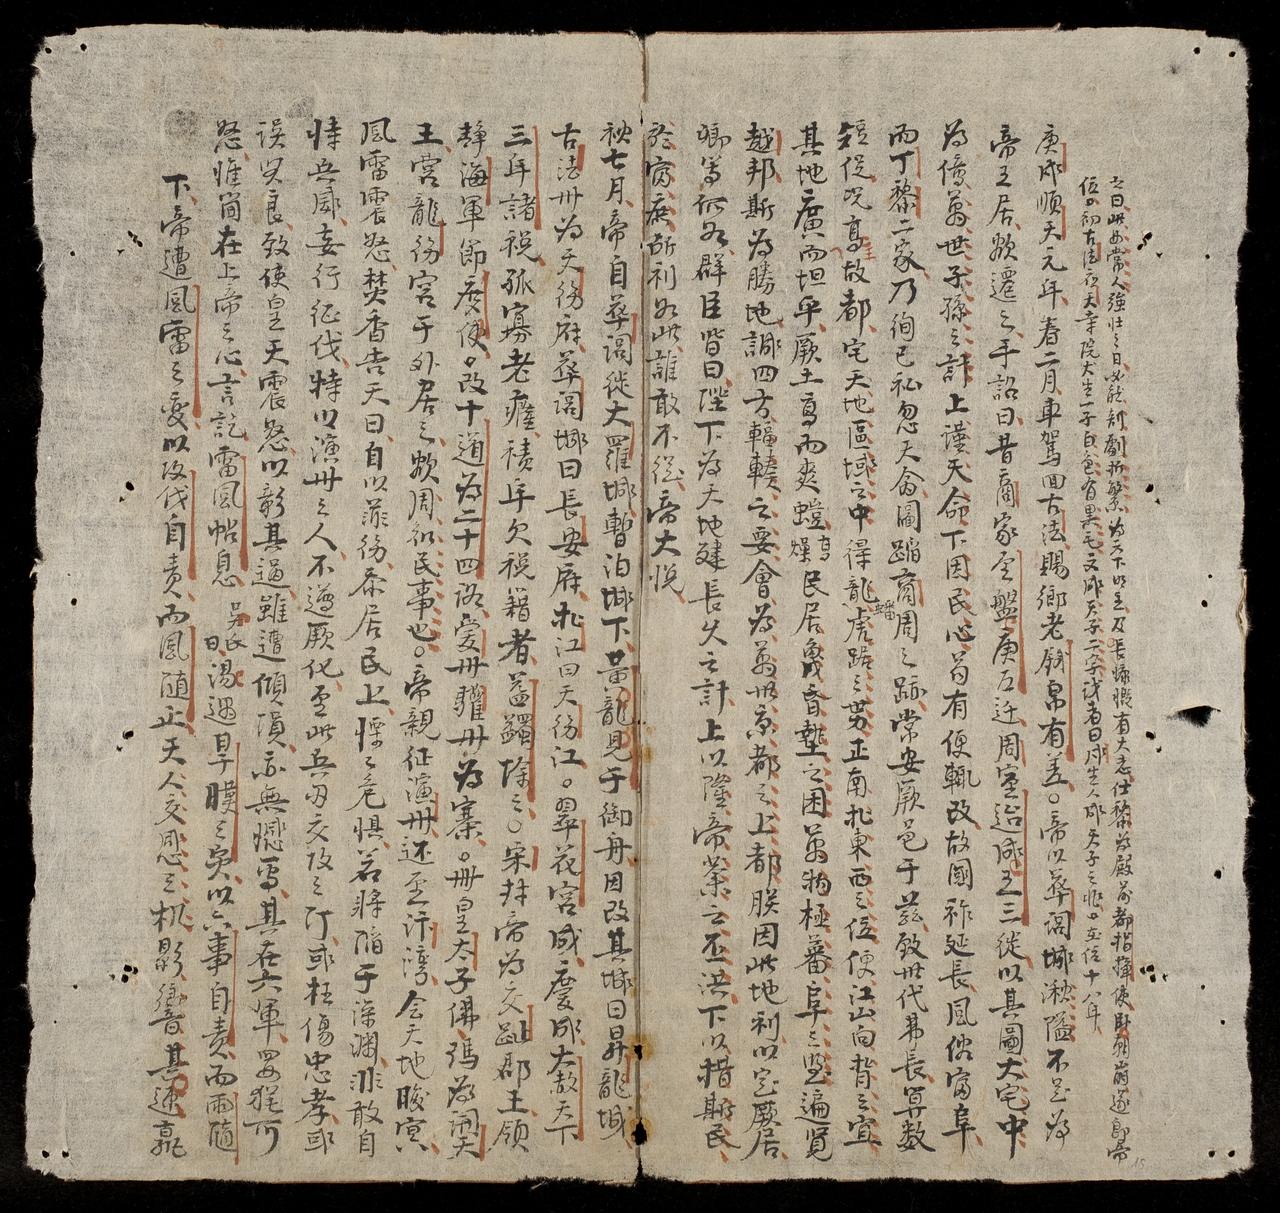 之曰此必常人強壯之日必能剖劇折繁為天下明主及長慷慨有大志仕黎為殿前都指揮使卧朝崩遂即帝
位〇初古法应天幸院犬生一子白色有黑毛文成天子二字識者曰戌生人成天子之兆〇在位十八年
庚戌順天元年春二月車駕回古法賜鄉老錢帛有差〇帝以華閭城湫隘不足為
帝王居欲遷之手詔曰昔商家至盤庚五迁周室迨成王三徙以其圖大宅中
為億萬世子孫之計上謹天命下因民心苟有便輒改故國祚延長風俗富阜
而丁黎二家乃徇己私忽天命罔蹈商周之跡常安厥邑于茲致世代弗長算数
短促况高王故都宅天地區域之中得龍蟠虎踞之势正南北東西之位便江山向背之宜
其地廣而坦平厥土高而爽塏高燥民居蔑昏墊之困萬物極蕃阜之豐遍覽
越邦斯為勝地誠四方輻輳之要會為萬世京都之上都朕因此地利以定厥居
卿等何如群臣皆曰陛下為天地建長久之計上以隆帝業之丕洪下以措斯民
於富庶所利如此誰敢不從帝大悅
秋七月帝自華閭徙大羅城暫泊城下黃龍見于御舟因改其城曰昇龍城
古法州為天德府華閭城曰長安府北江曰天德江〇翠花宮成慶成大赦天下
三年諸稅孤寡老瘧積年欠稅籍者益蠲除之〇宋封帝為交趾郡王領
靜海軍節度使〇改十道為二十四路愛州驩州為寨〇冊皇太子佛瑪為開天
王營龍德宮于外居之欲周知民事也〇帝親征演州还至汴灣会天地晦冥
風雷震怒焚香告天曰自以菲德忝居民上慄〻危惧若將陷于深淵非敢自
恃兵威妄行征伐特以演州之人不遵厥化至此兵刃交攻之際或枉傷忠孝或
误害良致使皇天震怒以彰其過雖遭傾損亦無懟焉其在六軍罪猶可
怒惟简在上帝之心言訖雷風帖息吳氏曰湯遇旱暵之災以六事自責而雨隨
下帝遭風雷之变以攻伐自責而風随止天人交感之机影響其速孰